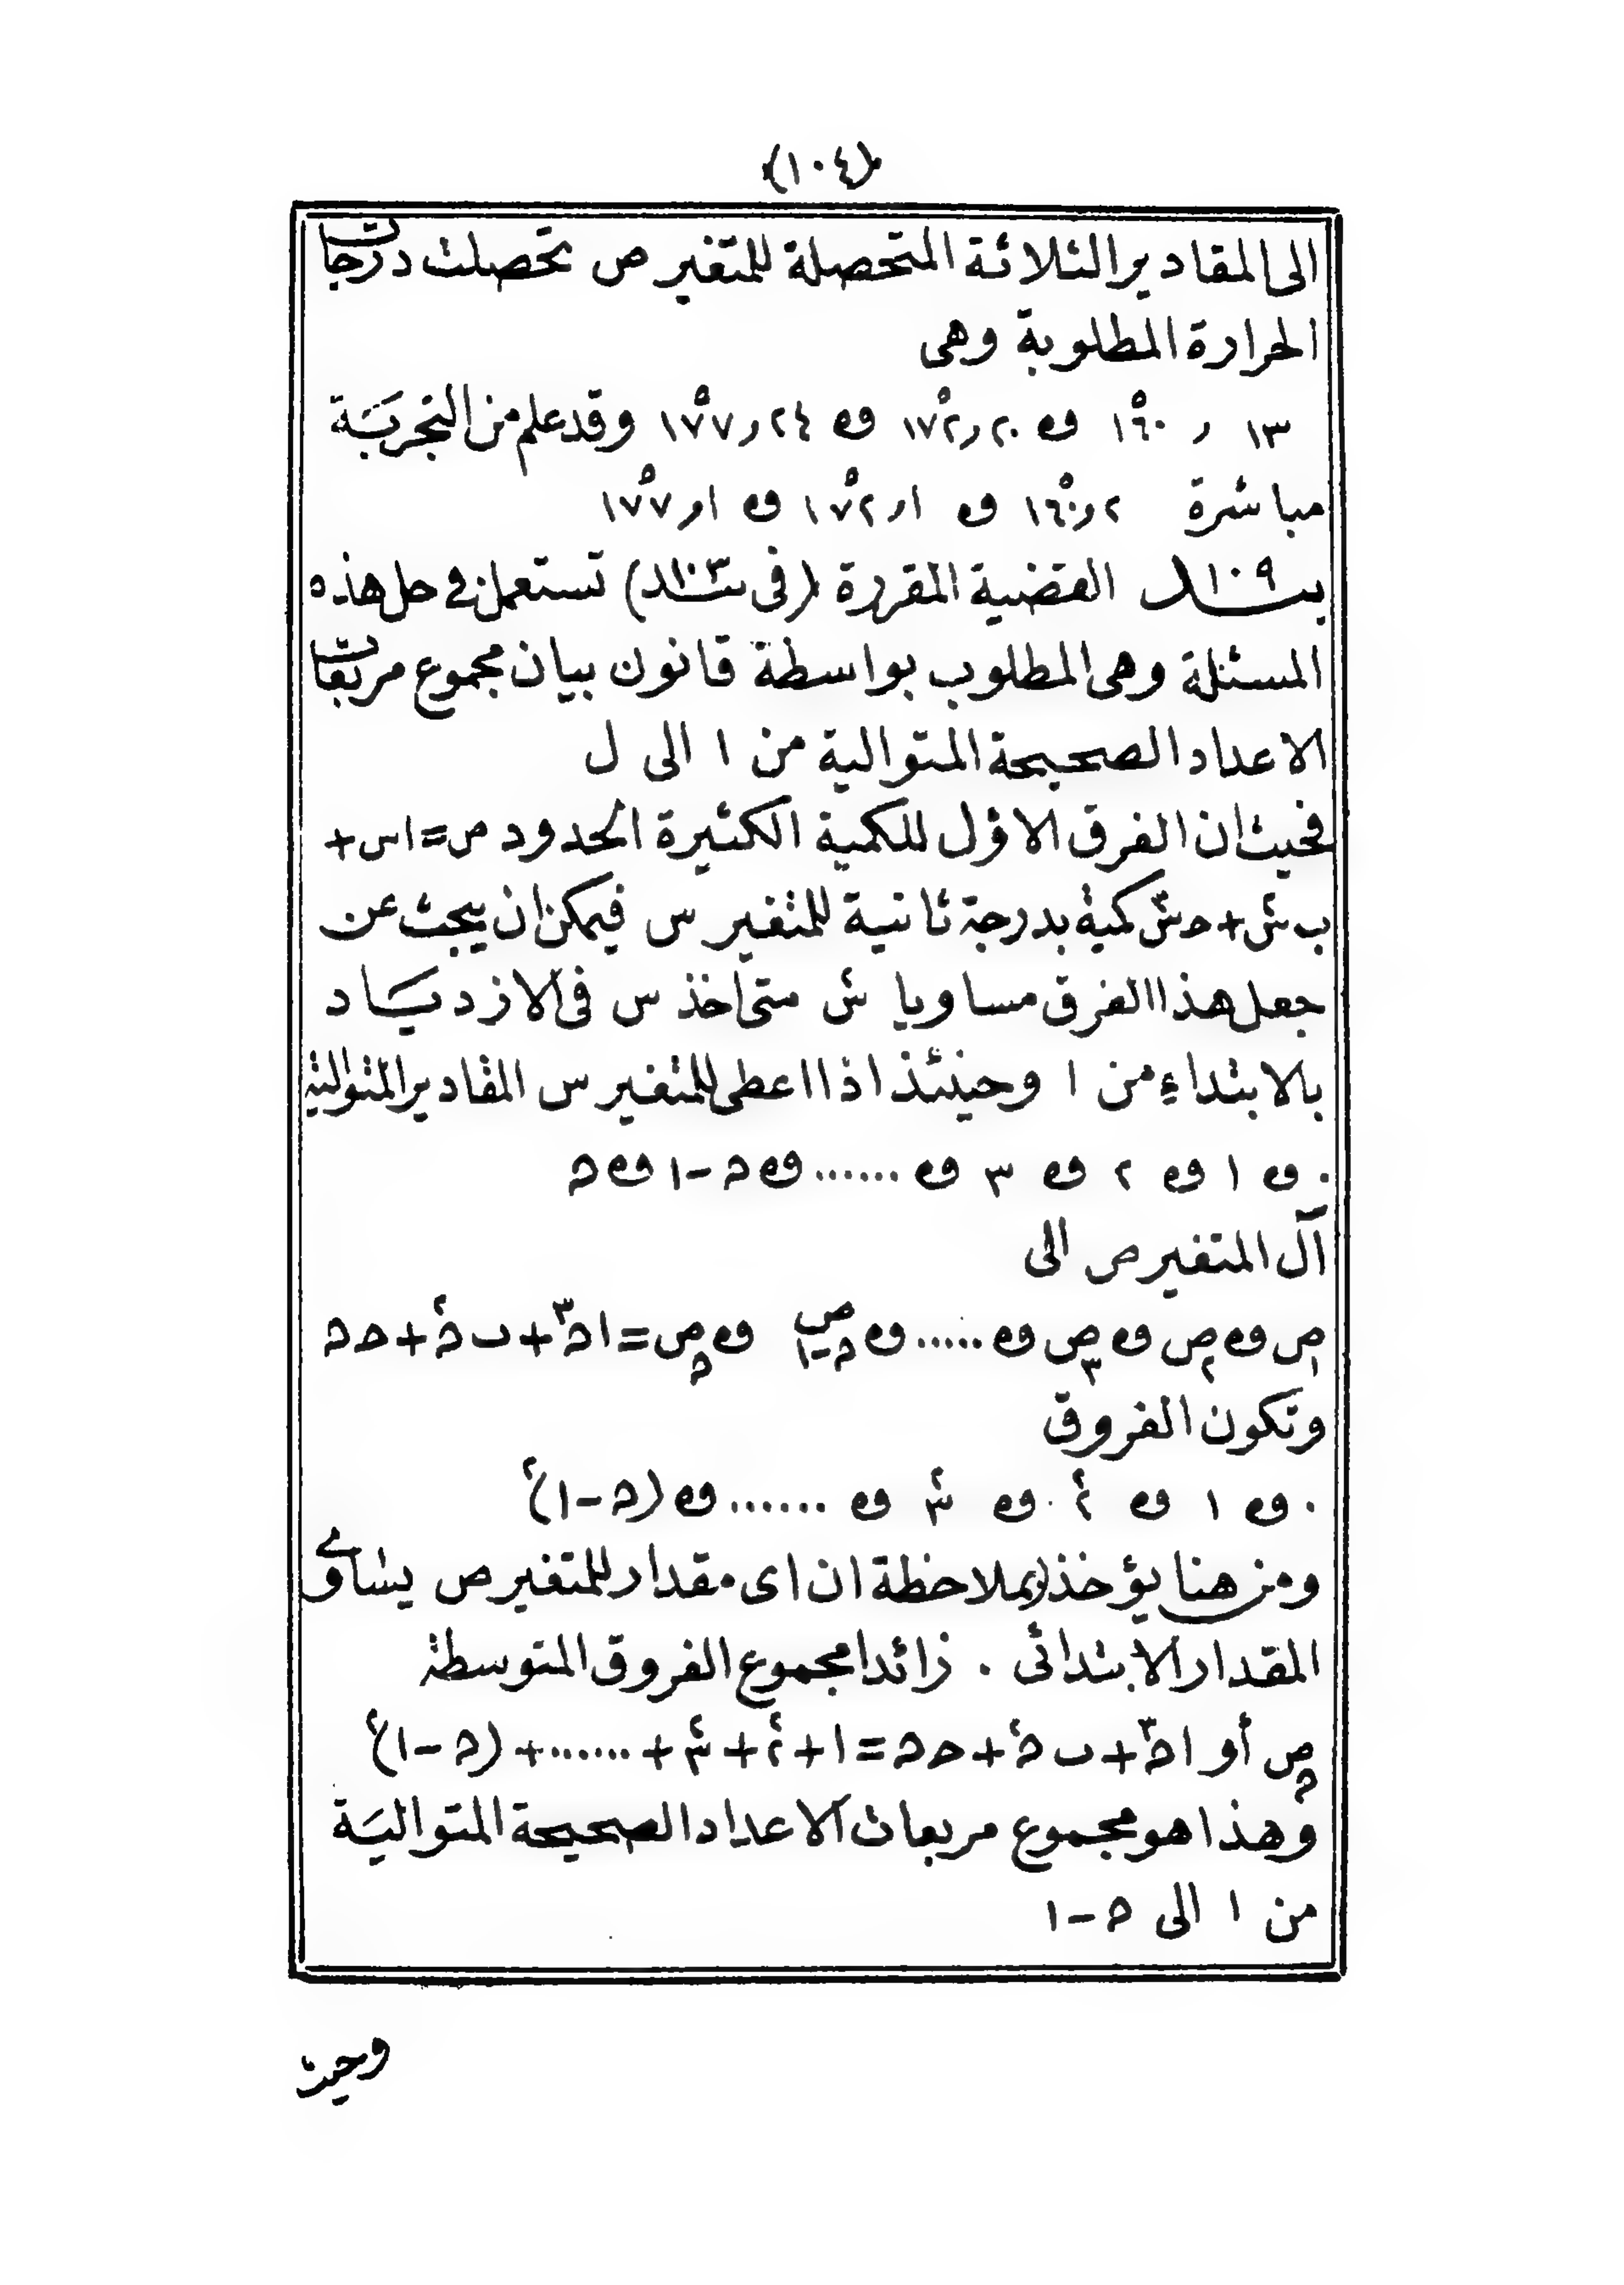 (١٠٤)
الى المقادير الثلاثة المتحصلة للمتغير ص تحصلت درجات
الحرارة المطلوبة وهى
١٣ ر ١٦٠° و ٢٠ر١٧٢° و ٢٤ر١٧٧° وقد علم من التجربة
مباشرة ٢ر١٦٠° و ١ر١٧٢° و ١ر١٧٧°
بنـ١٠٩ـد القضية المقررة (فى بنـ١٠٣ـد) تستعمل فى حل هذه
المسئلة وهى المطلوب بواسطة قانون بيان مجموع مربعات
الاعداد الصحيحة المتوالية من ١ الى ل
فحيث ان الفرق الاوّل للكمية الكثيرة الحدود ص = ا س٣ +
ب س٢ + حس كمية بدرجة ثانية للمتغير س فيمكن ان يبحث عن
جعل هذا الفرق مساويا س٢ متى اخذ س فى الازدياد
بالابتداء من ١ وحينئذ اذا اعطى للمتغير س المقادير المتوالية
٠ و ١ و ٢ و ٣ و ...... و ﮪ - ١ و ﮪ
آل المتغير ص الى
ص١ و ص٢ و ص٣ و ..... و صﮪ-١ و صﮪ = ا ﮪ٣ + ب ﮪ٢ + حﮪ
وتكون الفروق
٠ و ١ و ٢٢ و ٣٢ و ...... و (ﮪ - ١)٢
ومن هنا يؤخذ (بملاحظة ان اى مقدار للمتغير ص يساوى
المقدار الابتدائى ٠ زائدا مجموع الفروق المتوسطة
صﮪ أو ا ﮪ٣ + ب ﮪ٢ + حﮪ = ١ + ٢٢ + ٣٢ + ...... + (ﮪ - ١)٢
وهذا هو مجموع مربعات الاعداد الصحيحة المتوالية
من ١ الى ﮪ - ١
وحيث